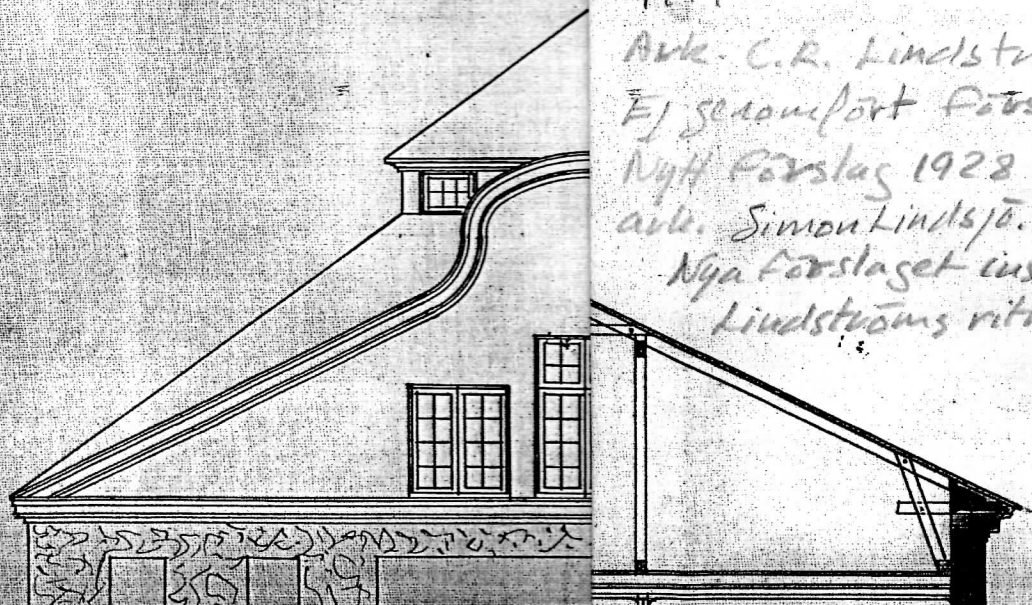 Ark. C.R. Lindstr
Ej genomfört förs
Nytt förslag 1928
ark. Simon Lindsjö.
Nya förslaget ins
Lindströms rit